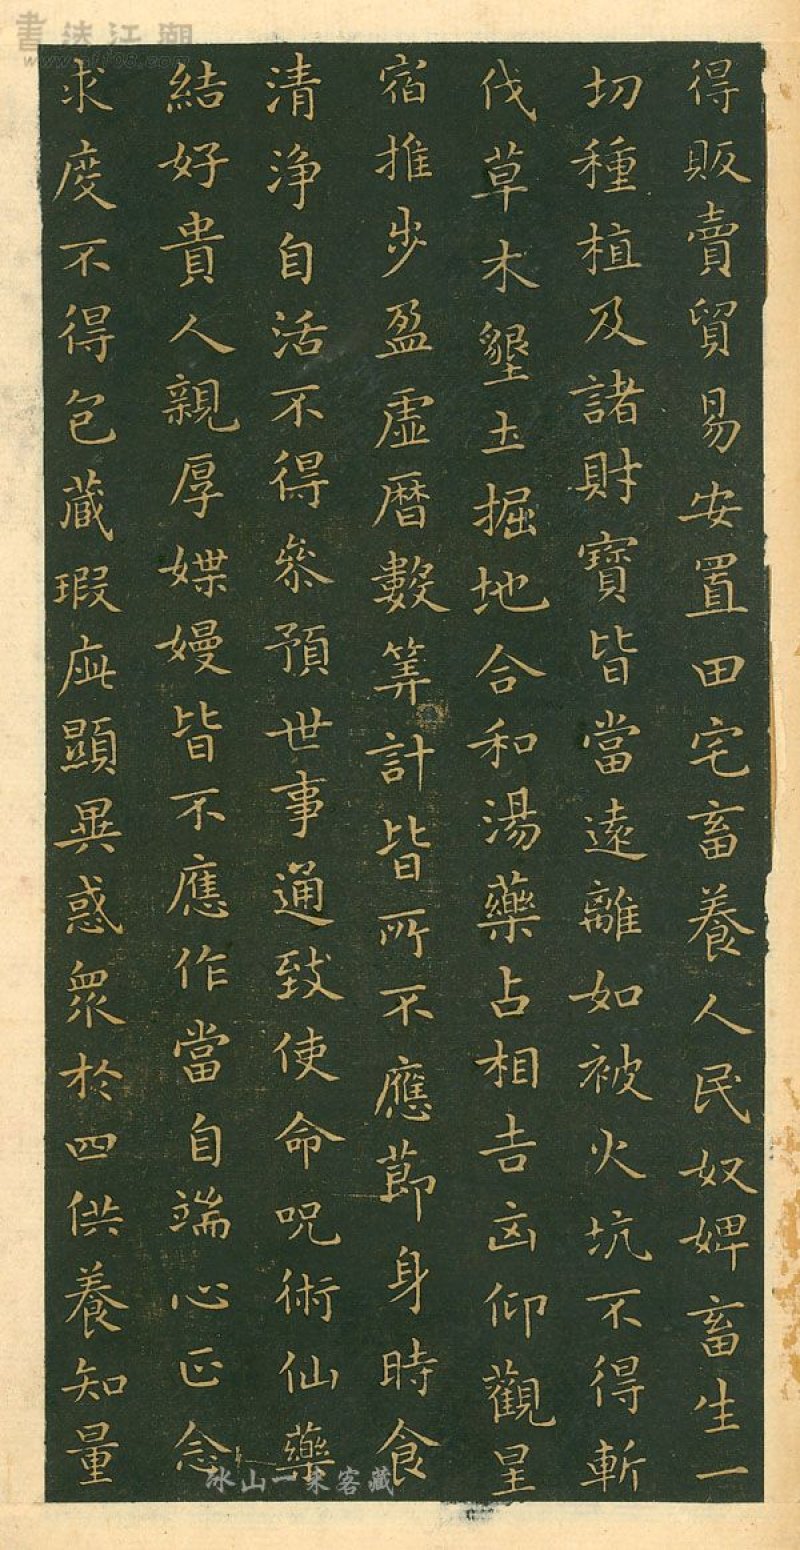 得販賣貿易安置田宅畜養人民奴婢畜生一
切種植及諸財寶皆當遠離如被火坑不得斬
伐草木墾土掘地合和湯藥占相吉凶仰觀星
宿推步盈虛曆數筭計皆所不應節身時食
清淨自活不得參預世事通致使命呪術仙藥
結好貴人親厚媟嫚皆不應作當自端心正念
求度不得包藏瑕疵顯異惑眾於四供養知量
書法江湖
冰山一末客藏